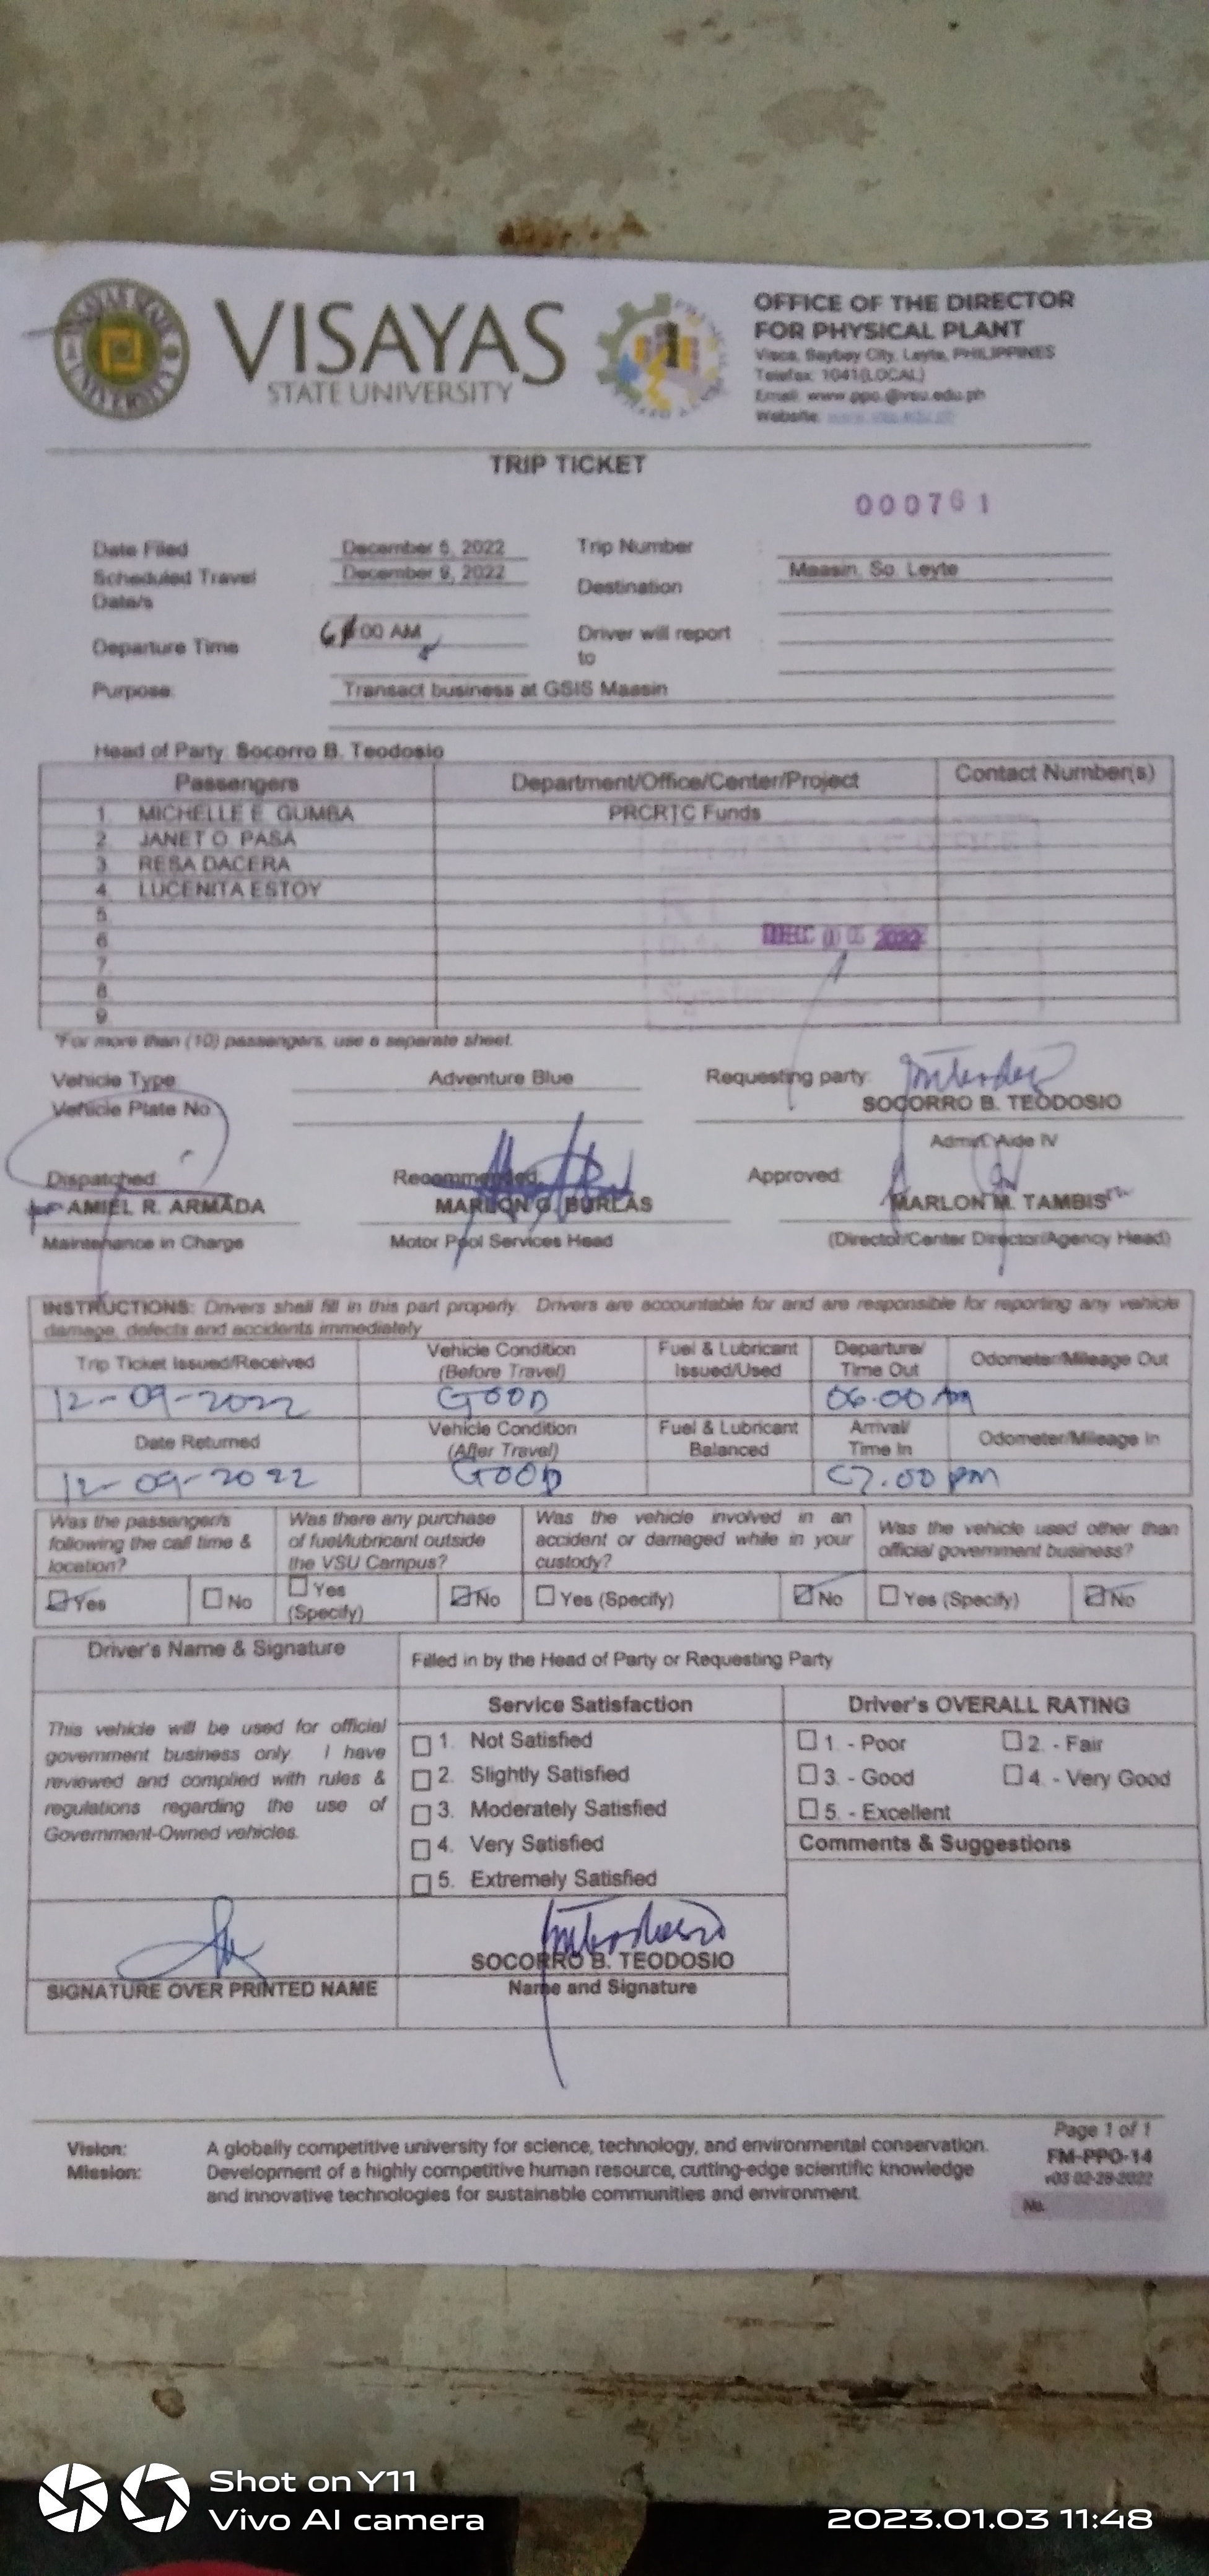 VISAYAS
STATE UNIVERSITY
OFFICE OF THE DIRECTOR
FOR PHYSICAL PLANT
Visca, Baybay City, Leyte, PHILIPPINES
Telefax: 1041(LOCAL)
Email: www.ppo.@vsu.edu.ph
Website: www.vsu.edu.ph
TRIP TICKET
000761
Date Filed December 5, 2022 Trip Number :
Scheduled Travel Date/s December 9, 2022 Destination Maasin, So. Leyte
Departure Time 6:00 AM Driver will report to :
Purpose: Transact business at GSIS Maasin
Head of Party: Socorro B. Teodosio
Passengers Department/Office/Center/Project Contact Number(s)
1. MICHELLE E. GUMBA PRCRTC Funds
2. JANET O. PASA
3. RESA DACERA
4. LUCENITA ESTOY
5.
6. DEC 2022
7.
8.
9.
*For more than (10) passengers, use a separate sheet.
Vehicle Type Adventure Blue Requesting party:
Vehicle Plate No SOCORRO B. TEODOSIO
Admin. Aide IV
Dispatched: Recommended: Approved:
AMIEL R. ARMADA MARLON G. BURLAS MARLON M. TAMBIS
Maintenance in Charge Motor Pool Services Head (Director/Center Director/Agency Head)
INSTRUCTIONS: Drivers shall fill in this part properly. Drivers are accountable for and are responsible for reporting any vehicle
damage, defects and accidents immediately
Trip Ticket Issued/Received Vehicle Condition (Before Travel) Fuel & Lubricant Issued/Used Departure/ Time Out Odometer/Mileage Out
12-09-2022 GOOD 06:00 AM
Date Returned Vehicle Condition (After Travel) Fuel & Lubricant Balanced Arrival/ Time In Odometer/Mileage In
12-09-2022 GOOD 07.00 pm
Was the passenger/s following the call time & location? Was there any purchase of fuel/lubricant outside the VSU Campus? Was the vehicle involved in an accident or damaged while in your custody? Was the vehicle used other than official government business?
Yes No Yes (Specify) No Yes (Specify) No Yes (Specify) No
Driver's Name & Signature Filled in by the Head of Party or Requesting Party
Service Satisfaction Driver's OVERALL RATING
This vehicle will be used for official government business only. I have reviewed and complied with rules & regulations regarding the use of Government-Owned vehicles.
1. Not Satisfied 1. - Poor 2. - Fair
2. Slightly Satisfied 3. - Good 4. - Very Good
3. Moderately Satisfied 5. - Excellent
4. Very Satisfied Comments & Suggestions
5. Extremely Satisfied
SOCORRO B. TEODOSIO
SIGNATURE OVER PRINTED NAME Name and Signature
Vision: A globally competitive university for science, technology, and environmental conservation.
Mission: Development of a highly competitive human resource, cutting-edge scientific knowledge
and innovative technologies for sustainable communities and environment.
Page 1 of 1
FM-PPO-14
v03 02-28-2022
No.
Shot on Y11
Vivo AI camera
2023.01.03 11:48